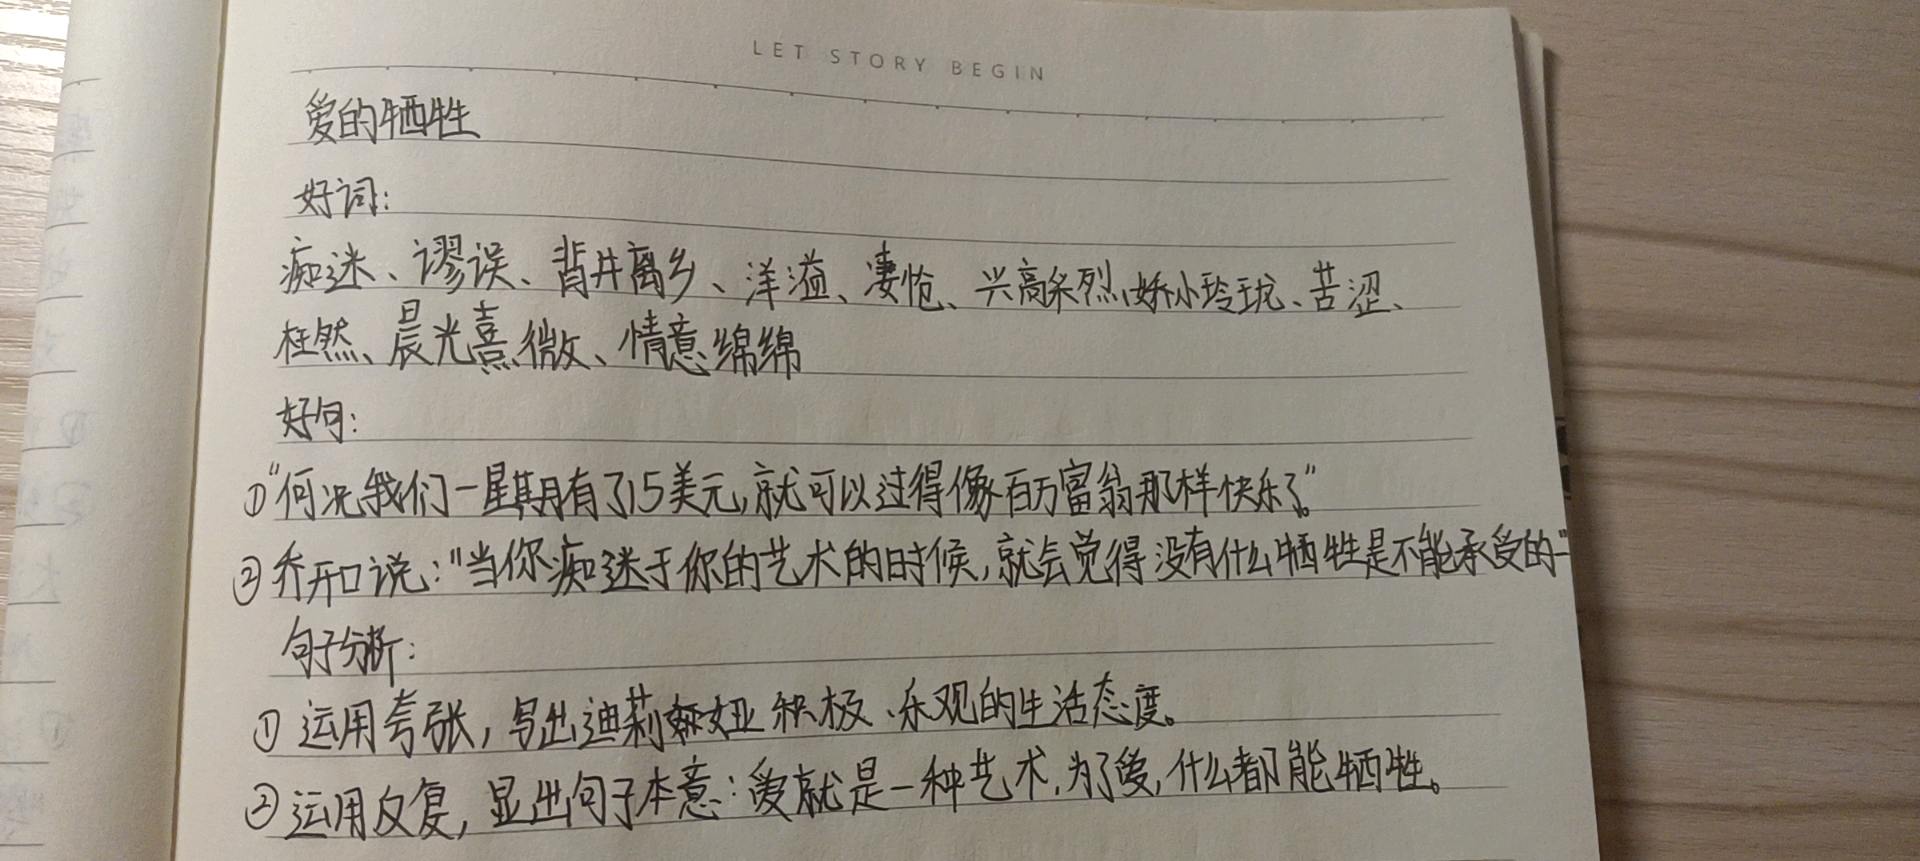 LET STORY BEGIN
爱的牺牲
好词：
痴迷、谬误、背井离乡、洋溢、凄怆、兴高采烈、娇小玲珑、苦涩、
枉然、晨光熹微、情意绵绵
好句：
①“何况我们一星期有了15美元，就可以过得像百万富翁那样快乐了。”
②乔开口说：“当你痴迷于你的艺术的时候，就会觉得没有什么牺牲是不能承受的—”
句子分析：
①运用夸张，写出迪莉娅积极、乐观的生活态度。
②运用反复，显出句子本意：爱就是一种艺术，为了爱，什么都能牺牲。